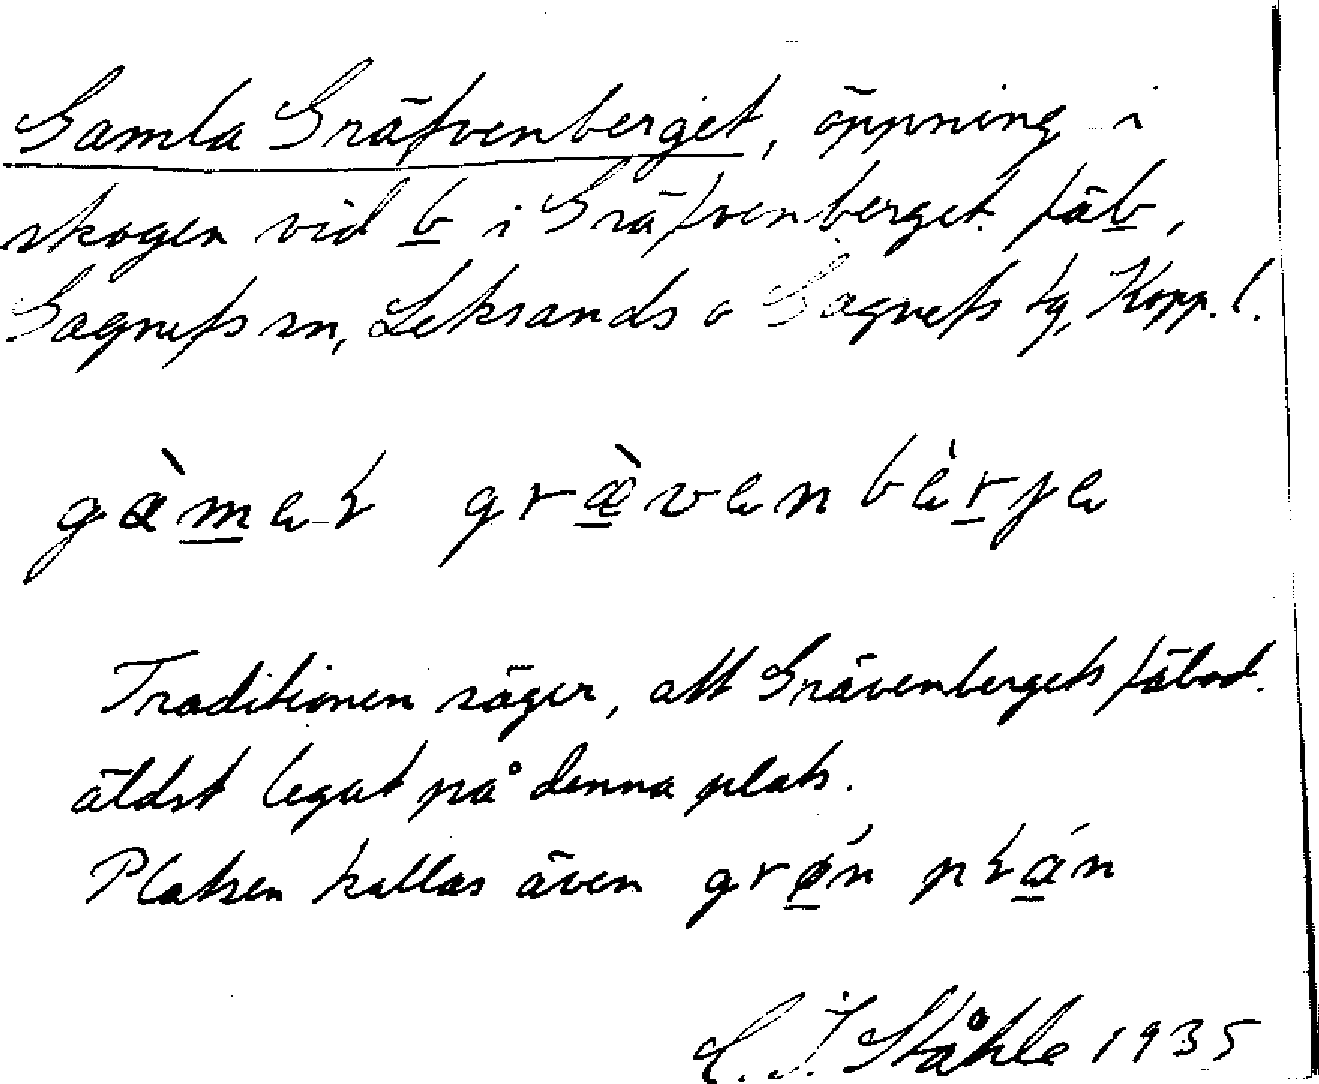 Gamla Gräfvenberget, öppning i
skogen vid b i Gräfvenberget fäb,
Gagnefs sn, Leksands o Gagnefs tg, Kopp. l.
gàmaɫ græ̀venbèrje
Traditionen säger, att Grävenbergets fäbod.
äldst legat på denna plats.
Platsen kallas även grǿn pɫán
C. I. Ståhle 1935